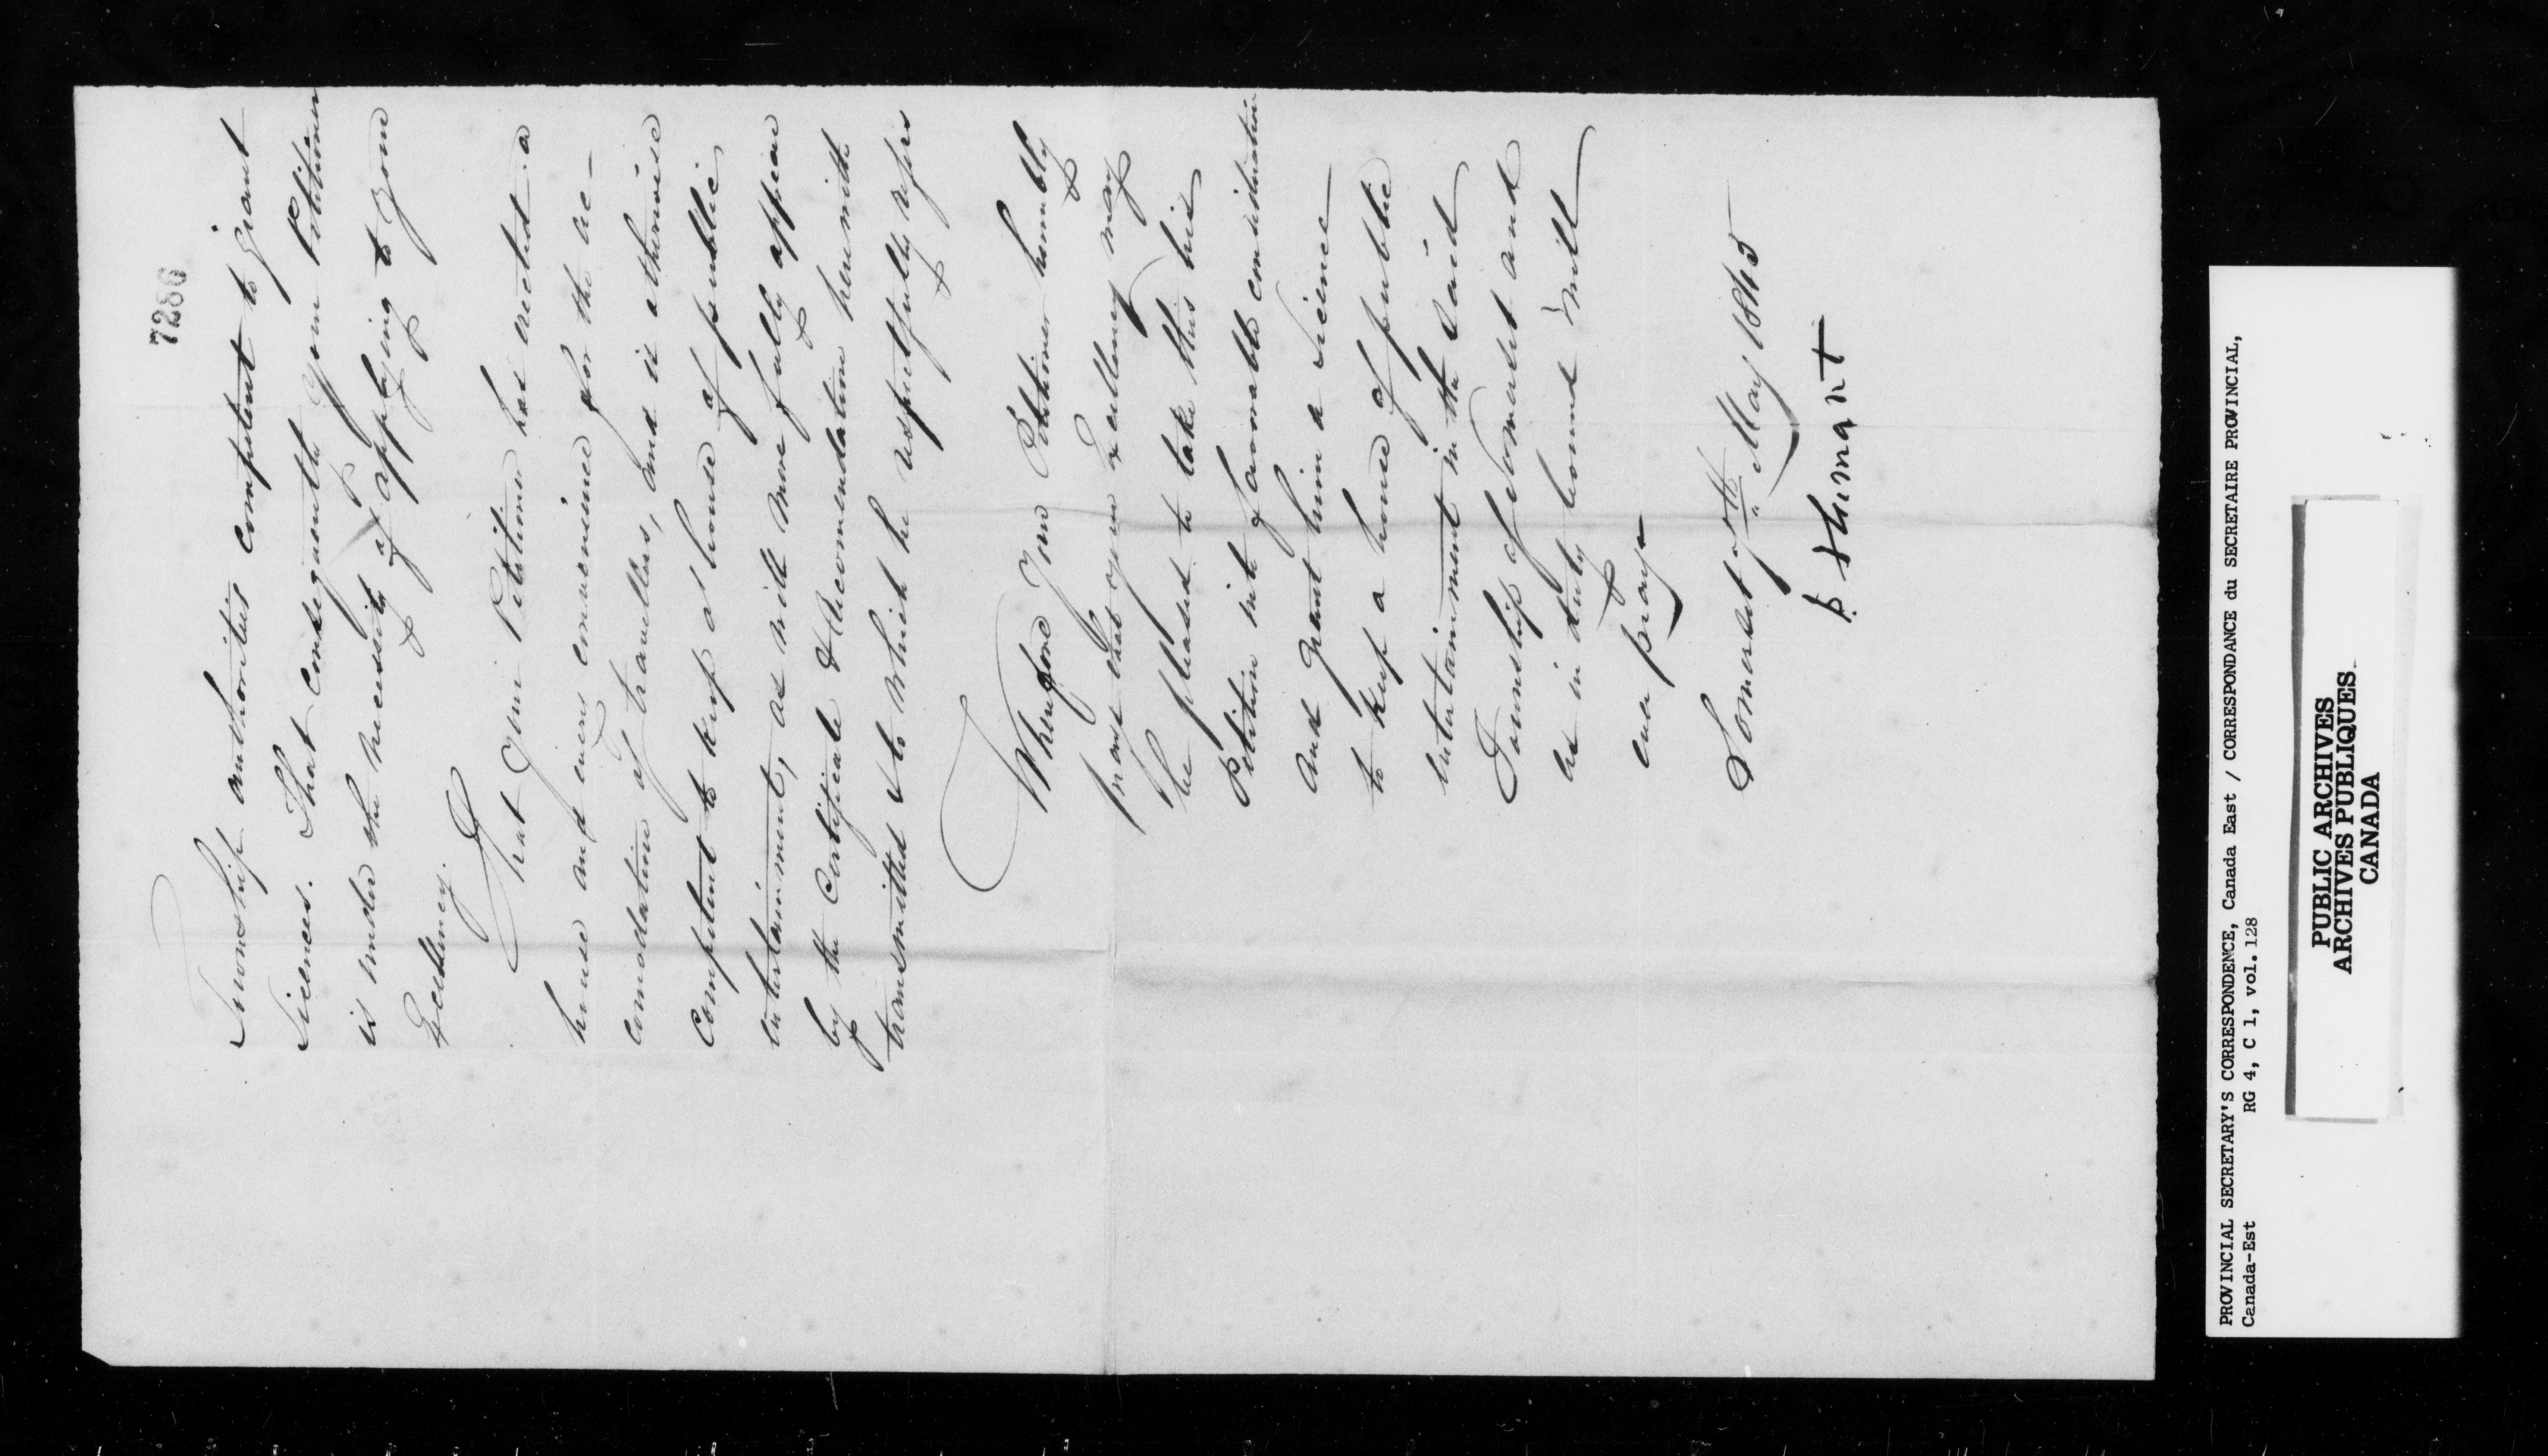 7286
Township authorities competent to grant
Licences. That consequently Your Petitioner
is under the necessity of applying to Your
Excellency.
That Your Petitioner has erected a
house and every convenience for the ac-
comodation of travellers, and is otherwise
competent to keep a house of public
entertainment, as will more fully appear
by the Certificate & Recommendation herewith
transmitted & to which he respectfully refers
Wherefore Your Petitioner humbly
prays that your Excellency may
be pleased to take this his
Petition into favorable consideration
and grant him a Licence
to keep a house of public
entertainment in the Said
Township of Somerset and
as in duty bound Will
ever pray
Somerset 9th May 1845
PROVINCIAL SECRETARY'S CORRESPONDENCE, Canada East / CORRESPONDANCE du SECRETAIRE PROVINCIAL,
Canada-Est RG 4, C 1, vol. 128
PUBLIC ARCHIVES
ARCHIVES PUBLIQUES
CANADA